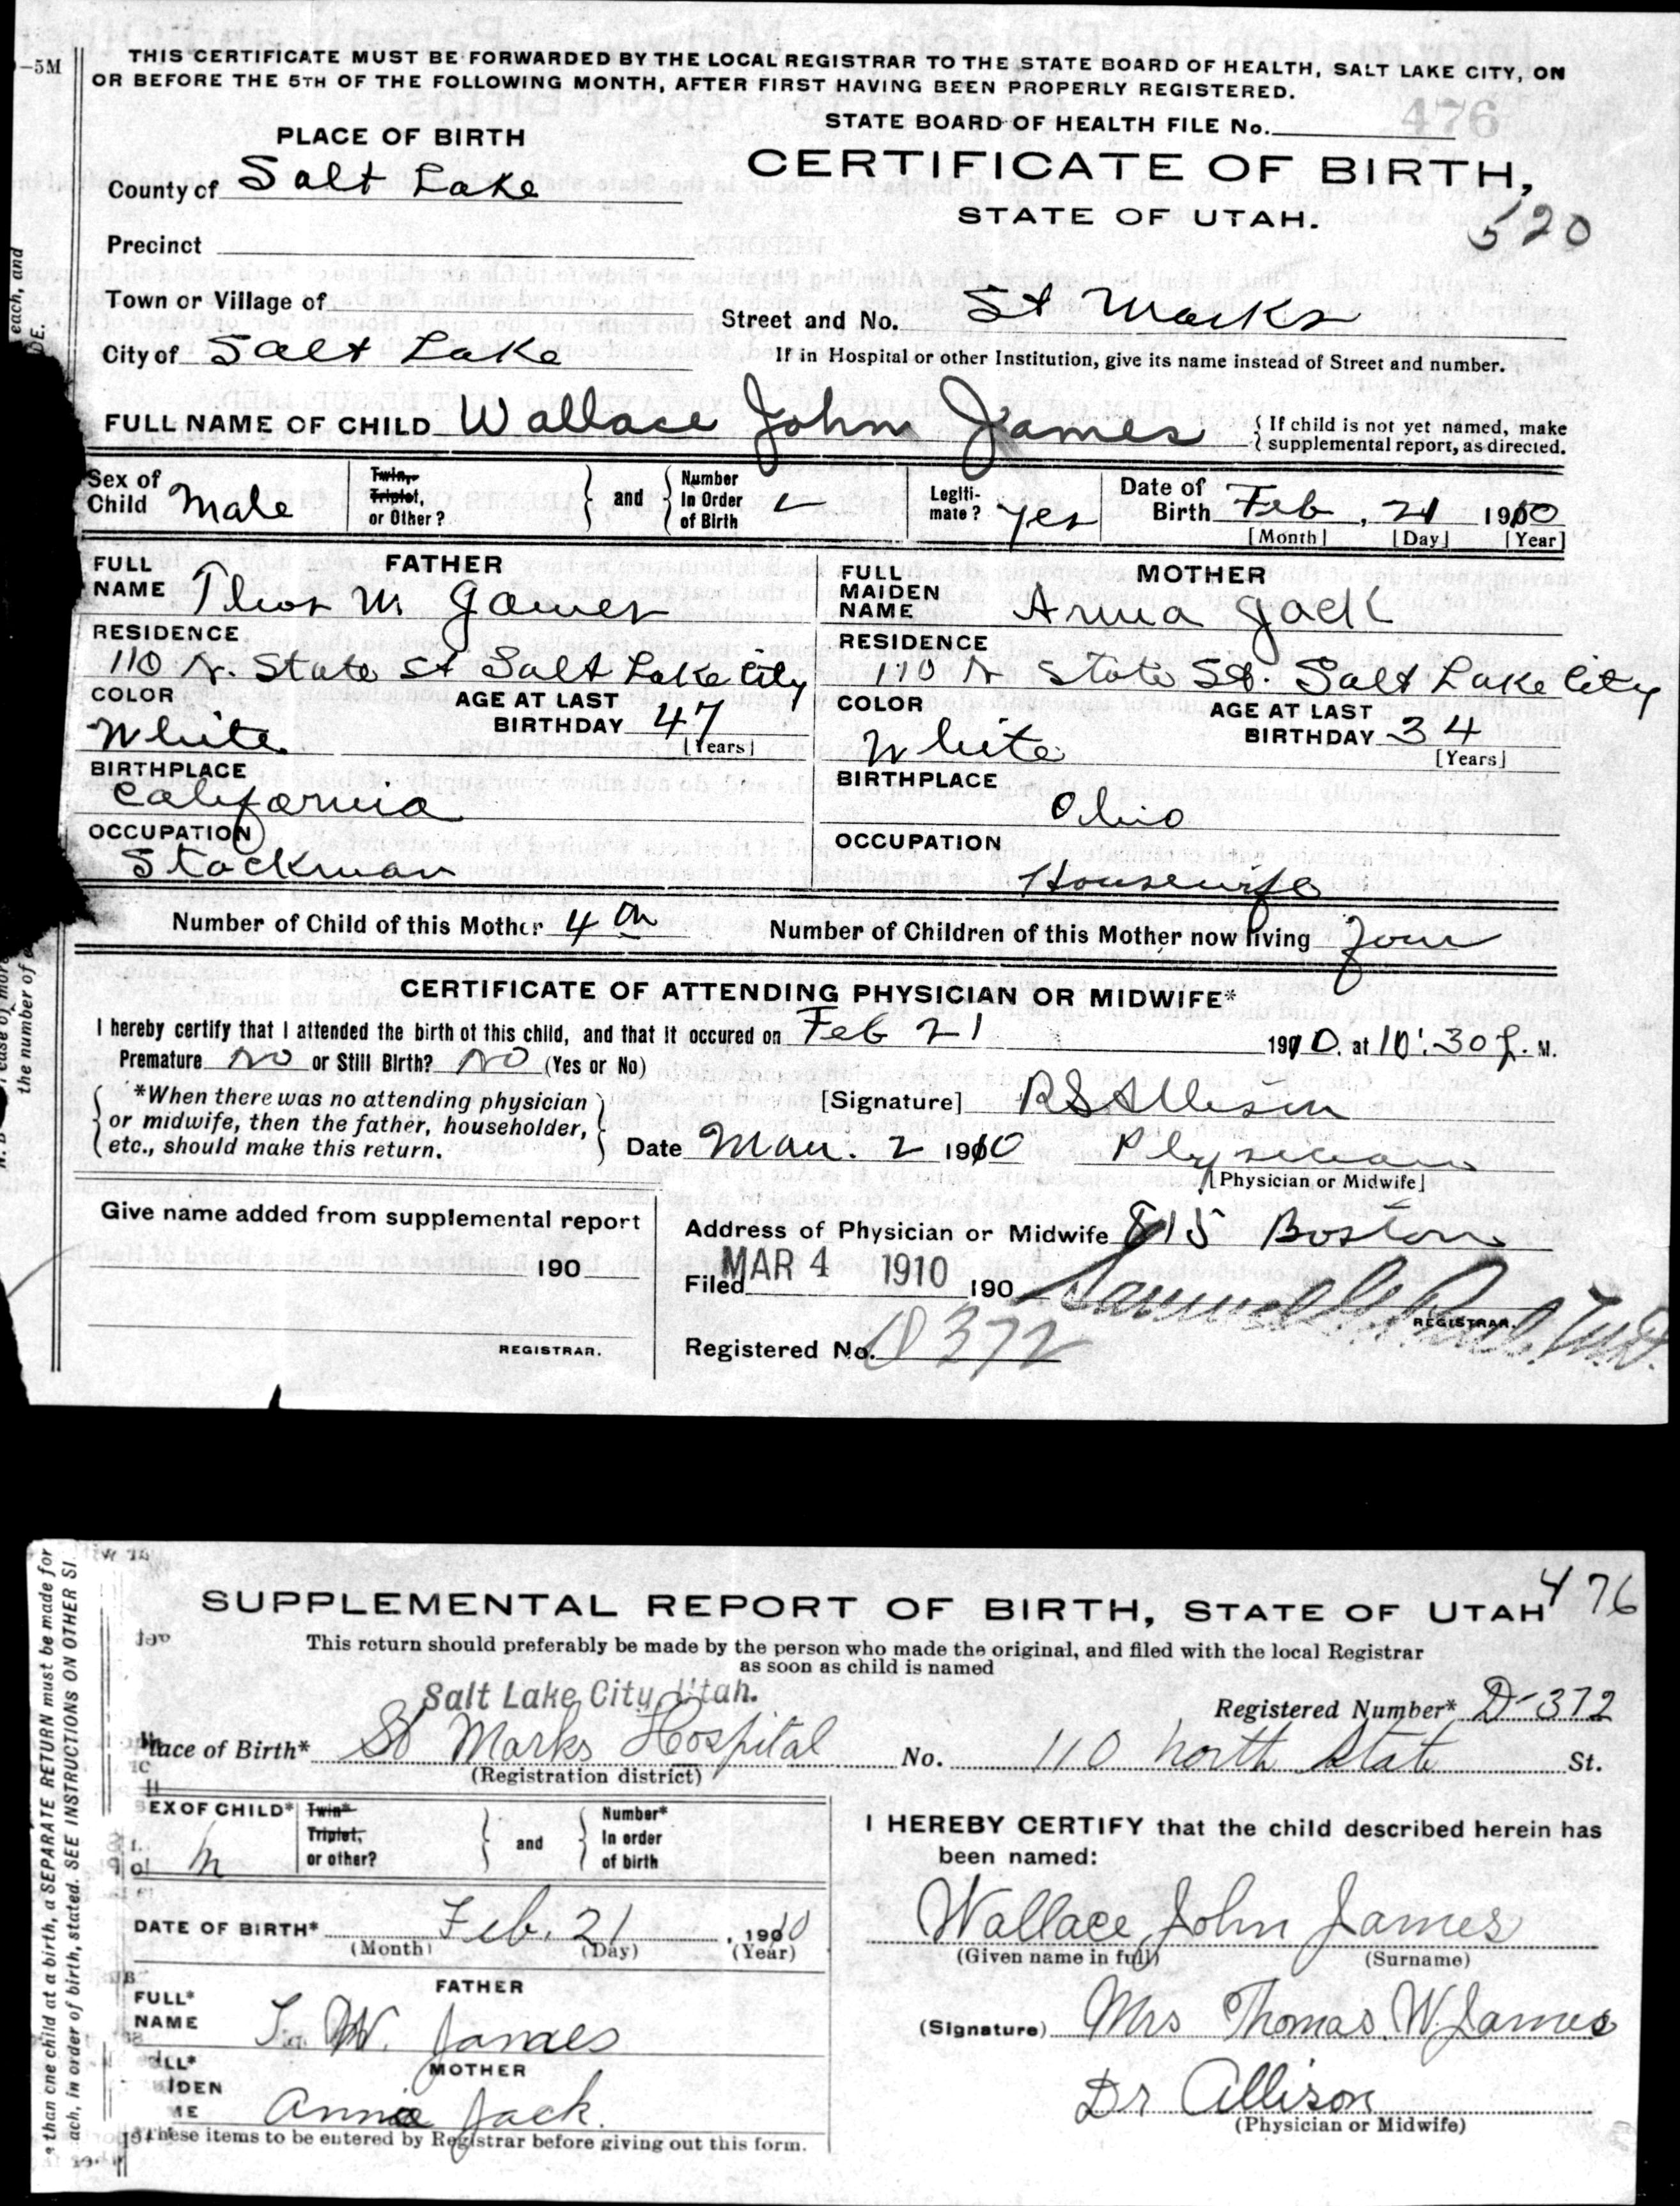 -5M
THIS CERTIFICATE MUST BE FORWARDED BY THE LOCAL REGISTRAR TO THE STATE BOARD OF HEALTH, SALT LAKE CITY, ON
OR BEFORE THE 5TH OF THE FOLLOWING MONTH, AFTER FIRST HAVING BEEN PROPERLY REGISTERED.
476
STATE BOARD OF HEALTH FILE No.
PLACE OF BIRTH
CERTIFICATE OF BIRTH,
County of Salt Lake
STATE OF UTAH.
520
Precinct
Town or Village of
Street and No. St Marks
City of Salt Lake
If in Hospital or other Institution, give its name instead of Street and number.
FULL NAME OF CHILD Wallace John James
{ If child is not yet named, make
{ supplemental report, as directed.
Sex of Child Male
Twin, Triplet, or Other?
and
Number In Order of Birth
Legiti-mate? yes
Date of Birth Feb, 21 1910
[Month] [Day] [Year]
FATHER
FULL NAME Thos W. James
MOTHER
FULL MAIDEN NAME Anna Jack
RESIDENCE
110 N. State St Salt Lake City
RESIDENCE
110 N State St. Salt Lake City
COLOR White
AGE AT LAST BIRTHDAY 47
[Years]
COLOR White
AGE AT LAST BIRTHDAY 34
[Years]
BIRTHPLACE
California
BIRTHPLACE
Ohio
OCCUPATION
Stockman
OCCUPATION
Housewife
Number of Child of this Mother 4th
Number of Children of this Mother now living Four
CERTIFICATE OF ATTENDING PHYSICIAN OR MIDWIFE*
I hereby certify that I attended the birth of this child, and that it occured on Feb 21 1910. at 10:30 P. M.
Premature No or Still Birth? No (Yes or No)
*When there was no attending physician
or midwife, then the father, householder,
etc., should make this return.
[Signature] RS Allison
Date Mar. 2 1910 Physician
[Physician or Midwife]
Give name added from supplemental report
190
REGISTRAR.
Address of Physician or Midwife 815 Boston
Filed MAR 4 1910 190
REGISTRAR.
Registered No. D 372
each, and
the number of
SUPPLEMENTAL REPORT OF BIRTH, STATE OF UTAH
476
This return should preferably be made by the person who made the original, and filed with the local Registrar
as soon as child is named
Salt Lake City, Utah.
Registered Number* D-372
Place of Birth* St Marks Hospital No. 110 North State St.
(Registration district)
SEX OF CHILD* M
Twin* Triplet, or other?
and
Number* In order of birth
I HEREBY CERTIFY that the child described herein has
been named:
Wallace John James
(Given name in full) (Surname)
DATE OF BIRTH* Feb. 21, 1910
(Month) (Day) (Year)
FATHER
FULL* NAME T. W. James
(Signature) Mrs Thomas W. James
MOTHER
Anna Jack.
Dr Allison
(Physician or Midwife)
these items to be entered by Registrar before giving out this form.
than one child at a birth, a SEPARATE RETURN must be made for
ach, in order of birth, stated. SEE INSTRUCTIONS ON OTHER SI